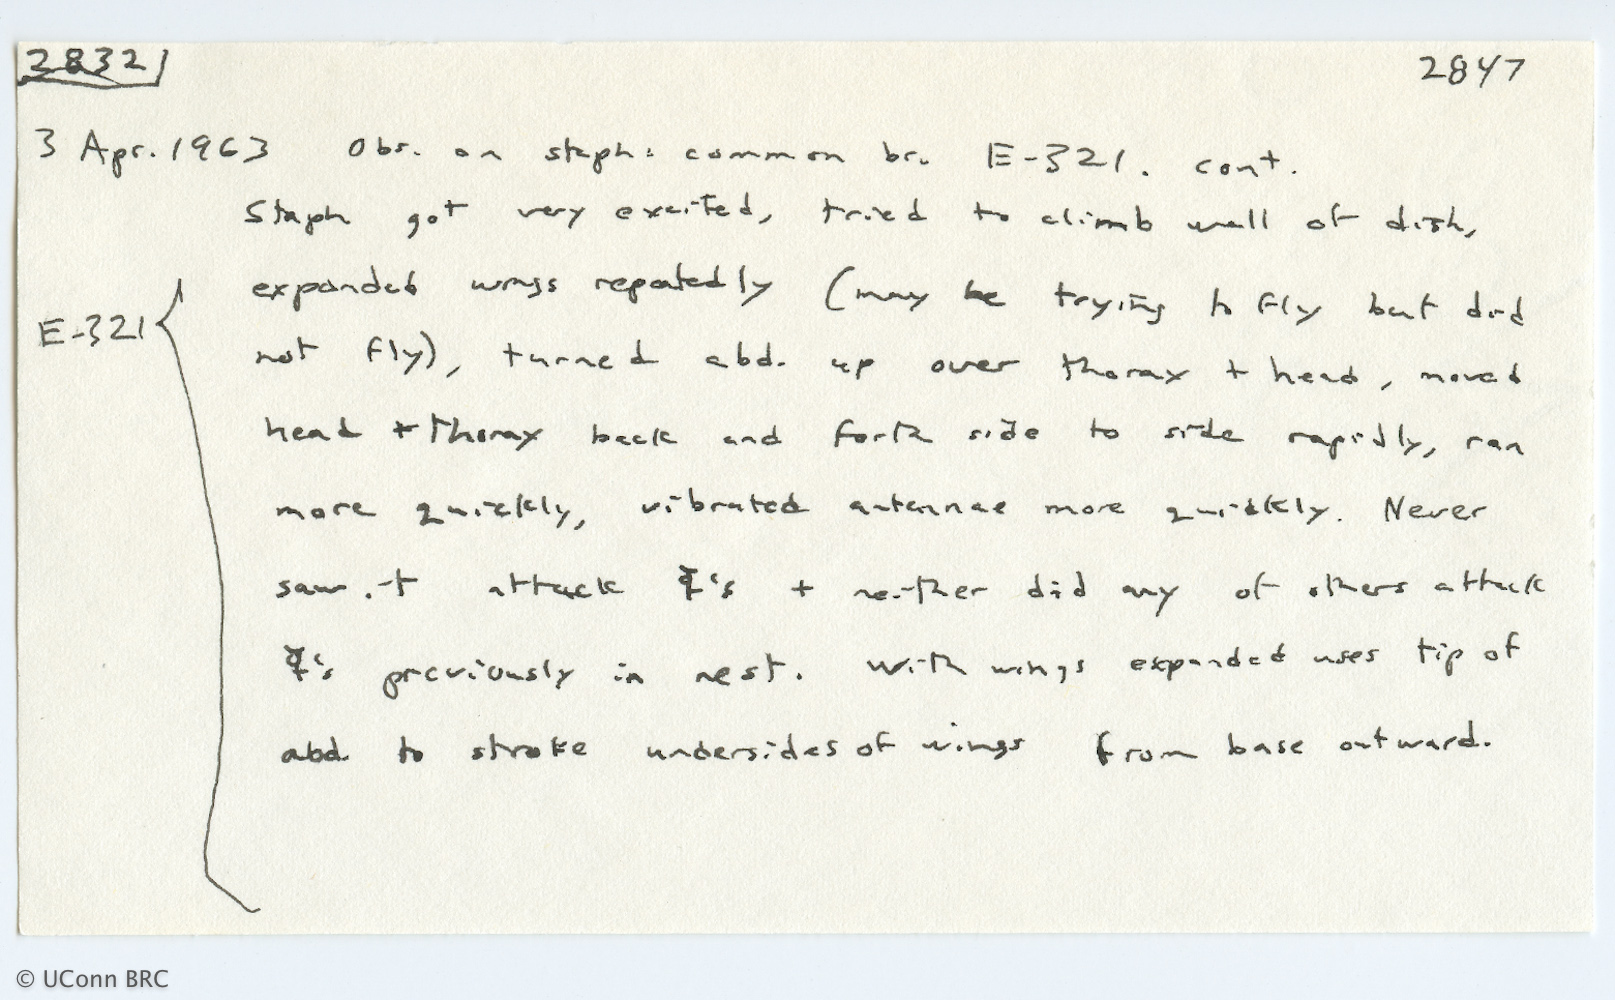 2832 2847
3 Apr. 1963 Obs. on staph: common br. E-321. cont.
Staph got very excited, tried to climb wall of dish,
expanded wings repeatedly (may be trying to fly but did
E-321 not fly), turned abd. up over thorax + head, moved
head + thorax back and forth side to side rapidly, ran
more quickly, vibrated antennae more quickly. Never
saw it attack ☿'s + neither did any of others attack
☿'s previously in nest. With wings expanded uses tip of
abd. to stroke undersides of wings from base outward.
© UConn BRC